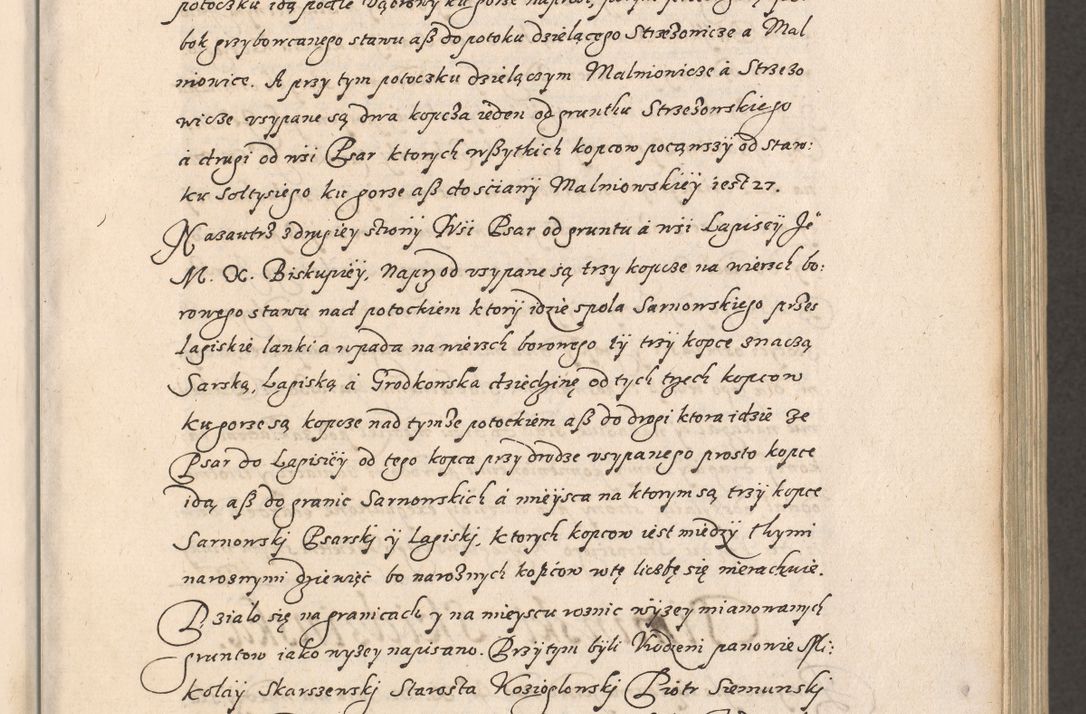 potoczku idą podle
bok grzybowcanego stawu aß do potoku dzielącego Strzeżowicze a Mal
niowice. A przy tym potoczku dzielączym Malmonicze á Strzeżo
wicze vsypane są dwa kopcza ieden od grunthu Strzeżowskiego
á drugi od wśi Psar ktorych wßytkich kopcow począwszÿ od staw:
ku Sołtysiego ku gorze aß do ściany Malniowskiéÿ iest 27.
Nazautrz z drugiey strony Wśi Psar od gruntu á wśi Łagiszÿ Je°
M. X. Biskupiéÿ, Naprzod vsypane są trzy kopcze na wierzch bo:
rowego stawu nad potockiem ktorÿ idzie spola Sarnowskiego przes
Łagiskie lanki a wpada na wierzch borowego tÿ trzÿ kopce znaczą
Sarską, Łagiską á Grodkowska dziedzinę od tych trzech kopcow
ku gorze są kopcze nad tymże potockiem aß do drogi ktora idzie ze
Psar do Łagiszéÿ od tego kopca przy drodze vsypanego prosto kopce
idą aß do granic Sarnowskich á mieÿsca na ktorym są trzÿ kopce
Sarnowskj Psarskj ÿ Łagiskj, ktorych kopcow iest miedzÿ thymi
naroznymi dziewięć bo narożnych kopćow w tę liczbę się nierachuie.
Działo się na granicach y na mieyscu roznic wÿzey mianowanych
gruntow iako wyżey napisano. Przÿtym bÿli Vrodzeni panowie Mi:
kołaÿ Skarszewskj Starosta Kozioglowskj Piotr Siemunskj